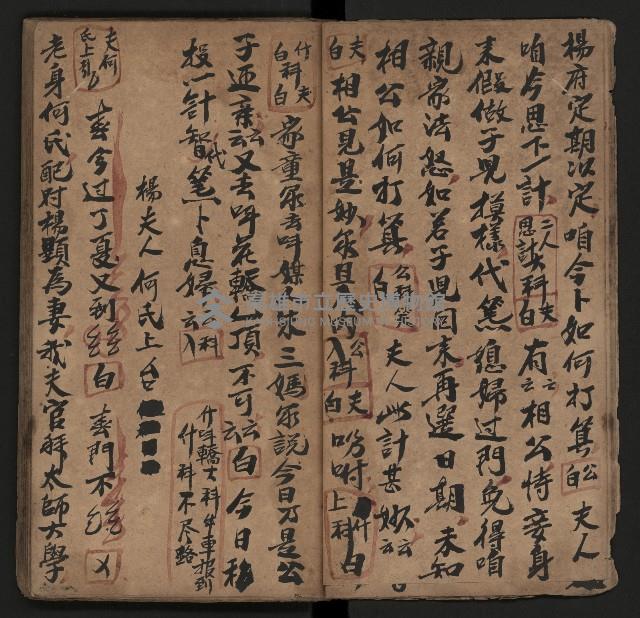 楊府定期以定咱今卜如何打算 公白 夫人
咱今思下一計 二人思計科 夫白 有云云相公恃妾身
來假做子児模樣代篤媳婦过門免得咱
親家法怒如若子児回來再選日期未知
相公如何打算 公科笑白 夫人此計甚妙云云
夫白 相公見是妙 入科 公夫白 吩咐 上科 什白
什科白 夫白 家童尔去叫媒人來三媽尔說今日乃是公
子迎親云云又去叫花轎一頂不可云云 白 今日移
投一計智代篤卜息婦云云 入科
什叫轎士科 什科不尽路
楊夫人何氏上台
夫何氏上引 春今过了夏又到 白 春門不 入
老身何氏配对楊顯為妻我夫官拜太師大學
高雄市立歷史博物館
KAOHSIUNG MUSEUM OF HISTORY